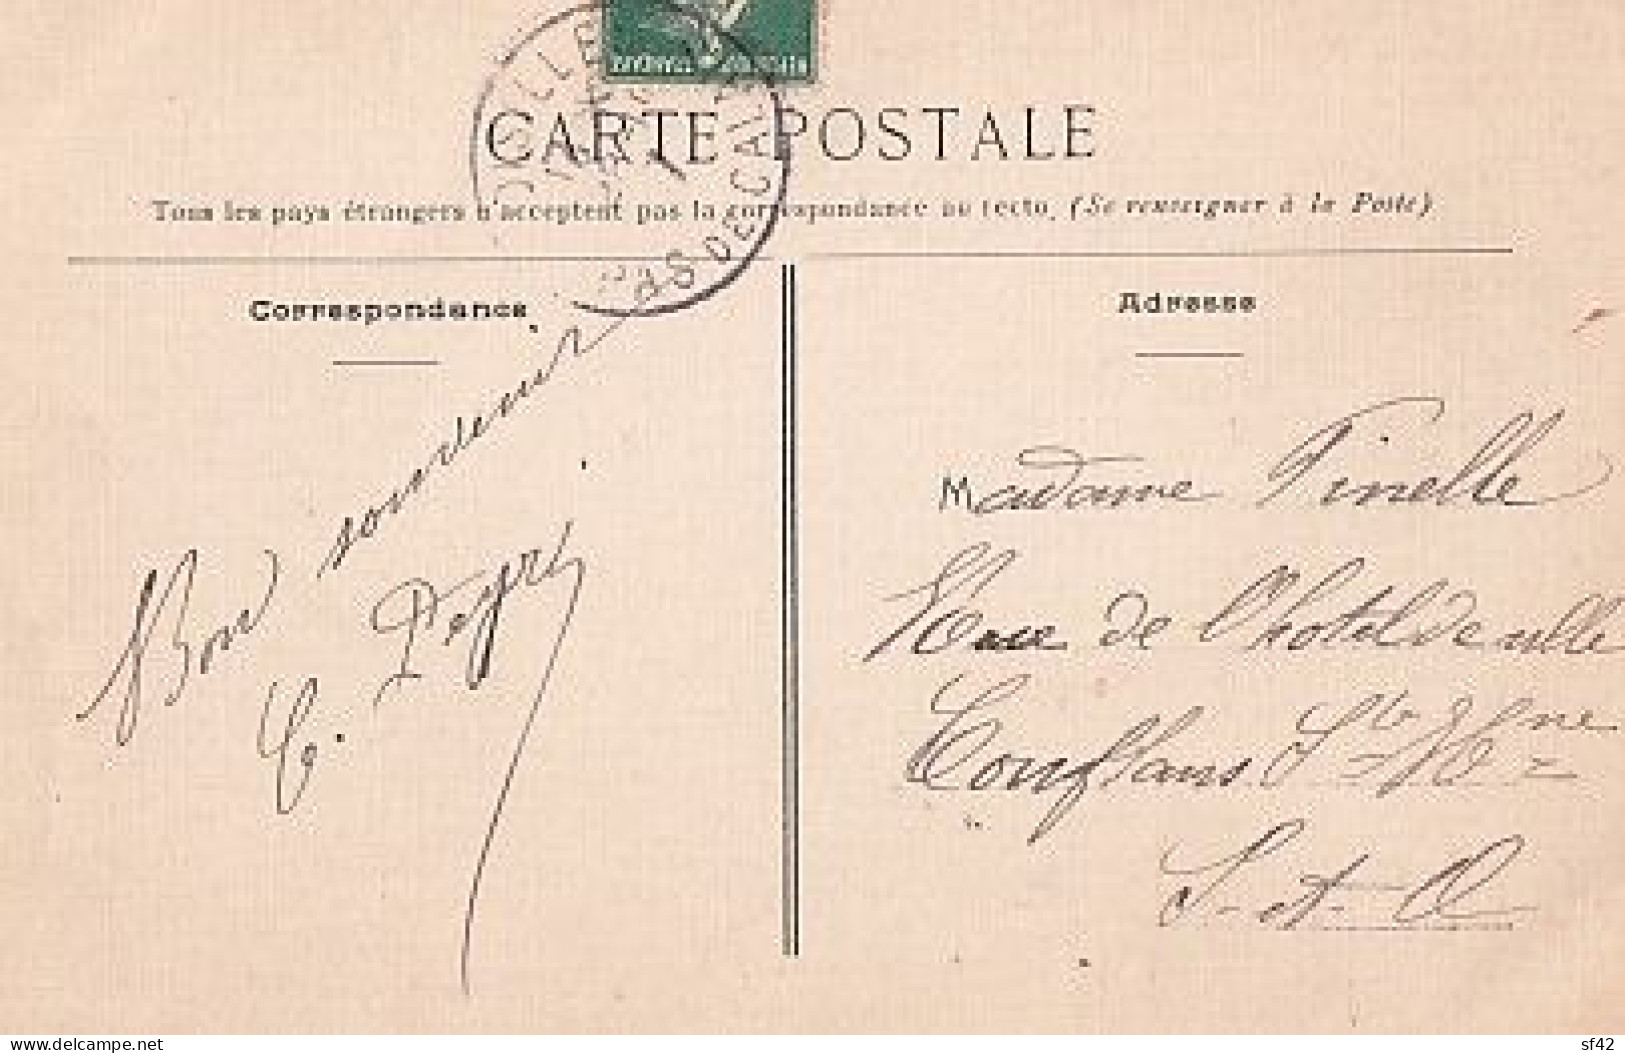 CARTE POSTALE
Tous les pays étrangers n'acceptent pas la correspondance au recto. (Se renseigner à la Poste)
PAS DE CALAIS
Correspondance
Bon souvenir
C. Peyri
Adresse
Madame Pinelle
Rue de l'hotel de ville
Conflans Ste Hne
S-et-O
delcampe.net
sf42